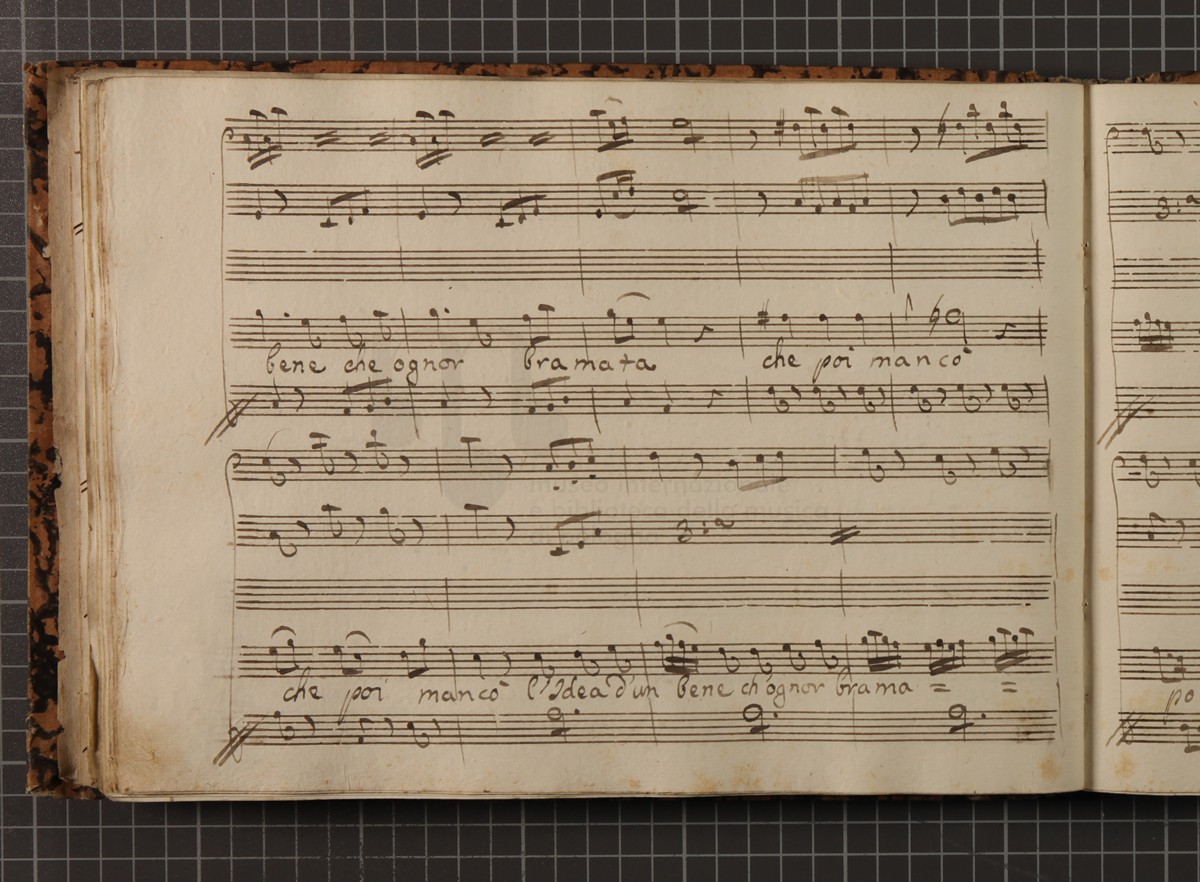 bene che ognor bramata che poi mancò
museo internazionale
e biblioteca della musica
3:a
che poi mancò l'Idea d'un bene ch'ognor brama = =
3:a
po